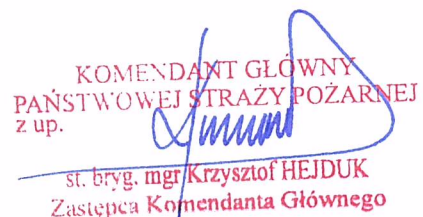 KOMENDANT GŁÓWNY
PAŃSTWOWEJ STRAŻY POŻARNEJ
z up.
st. bryg. mgr Krzysztof HEJDUK
Zastępca Komendanta Głównego